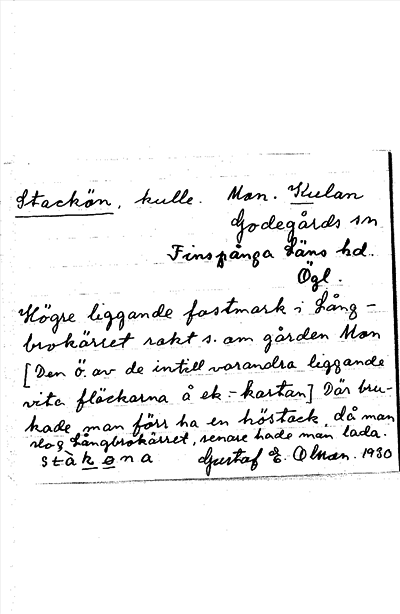 Stackön, kulle. Mon. Kulan
Godegårds sn
Finspånga Läns hd.
Ögl.
Högre liggande fastmark i Lång-
brokärret rakt s. om gården Mon
[Den ö. av de intill varandra liggande
vita fläckarna å ek.-kartan] Där bru-
kade man förr ha en höstack, då man
slog Långbrokärret, senare hade man lada.
stàkøna Gustaf E. Olson. 1930